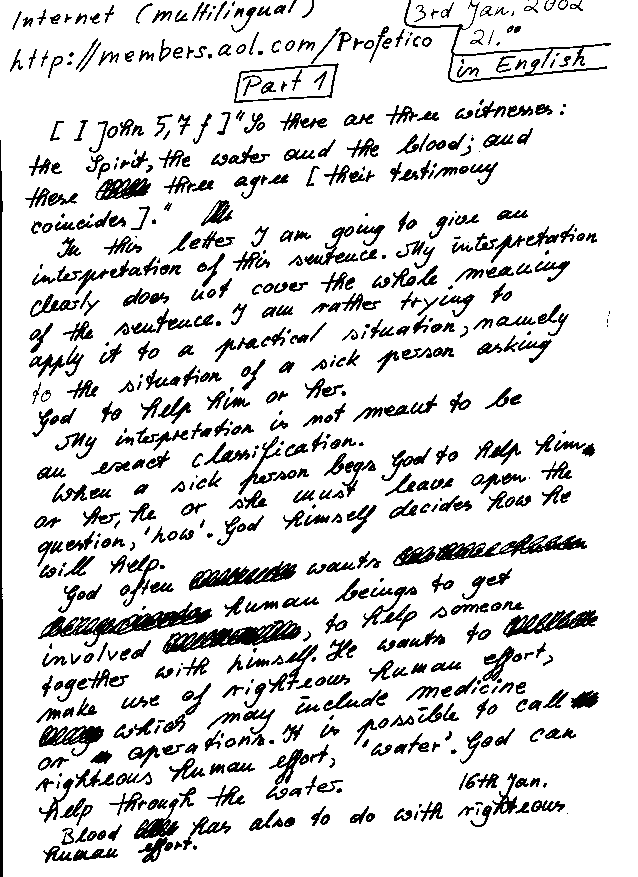 Internet (multilingual)
3rd Jan. 2002
http://members.aol.com/Profetico
21.00
in English
Part 1
[ I John 5,7 f ] "So there are three witnesses:
the Spirit, the water and the blood; and
these three agree [ their testimony
coincides ]."
In this letter I am going to give an
interpretation of this sentence. My interpretation
clearly does not cover the whole meaning
of the sentence. I am rather trying to
apply it to a practical situation, namely
to the situation of a sick person asking
God to help him or her.
My interpretation is not meant to be
an exact classification.
When a sick person begs God to help him
or her, he or she must leave open the
question, 'how'. God himself decides how he
will help.
God often wants
human beings to get
involved, to help someone
together with himself. He wants to
make use of righteous human effort,
which may include medicine
or operations. It is possible to call
righteous human effort, 'water'. God can
help through the water. 16th Jan.
Blood has also to do with righteous
human effort.